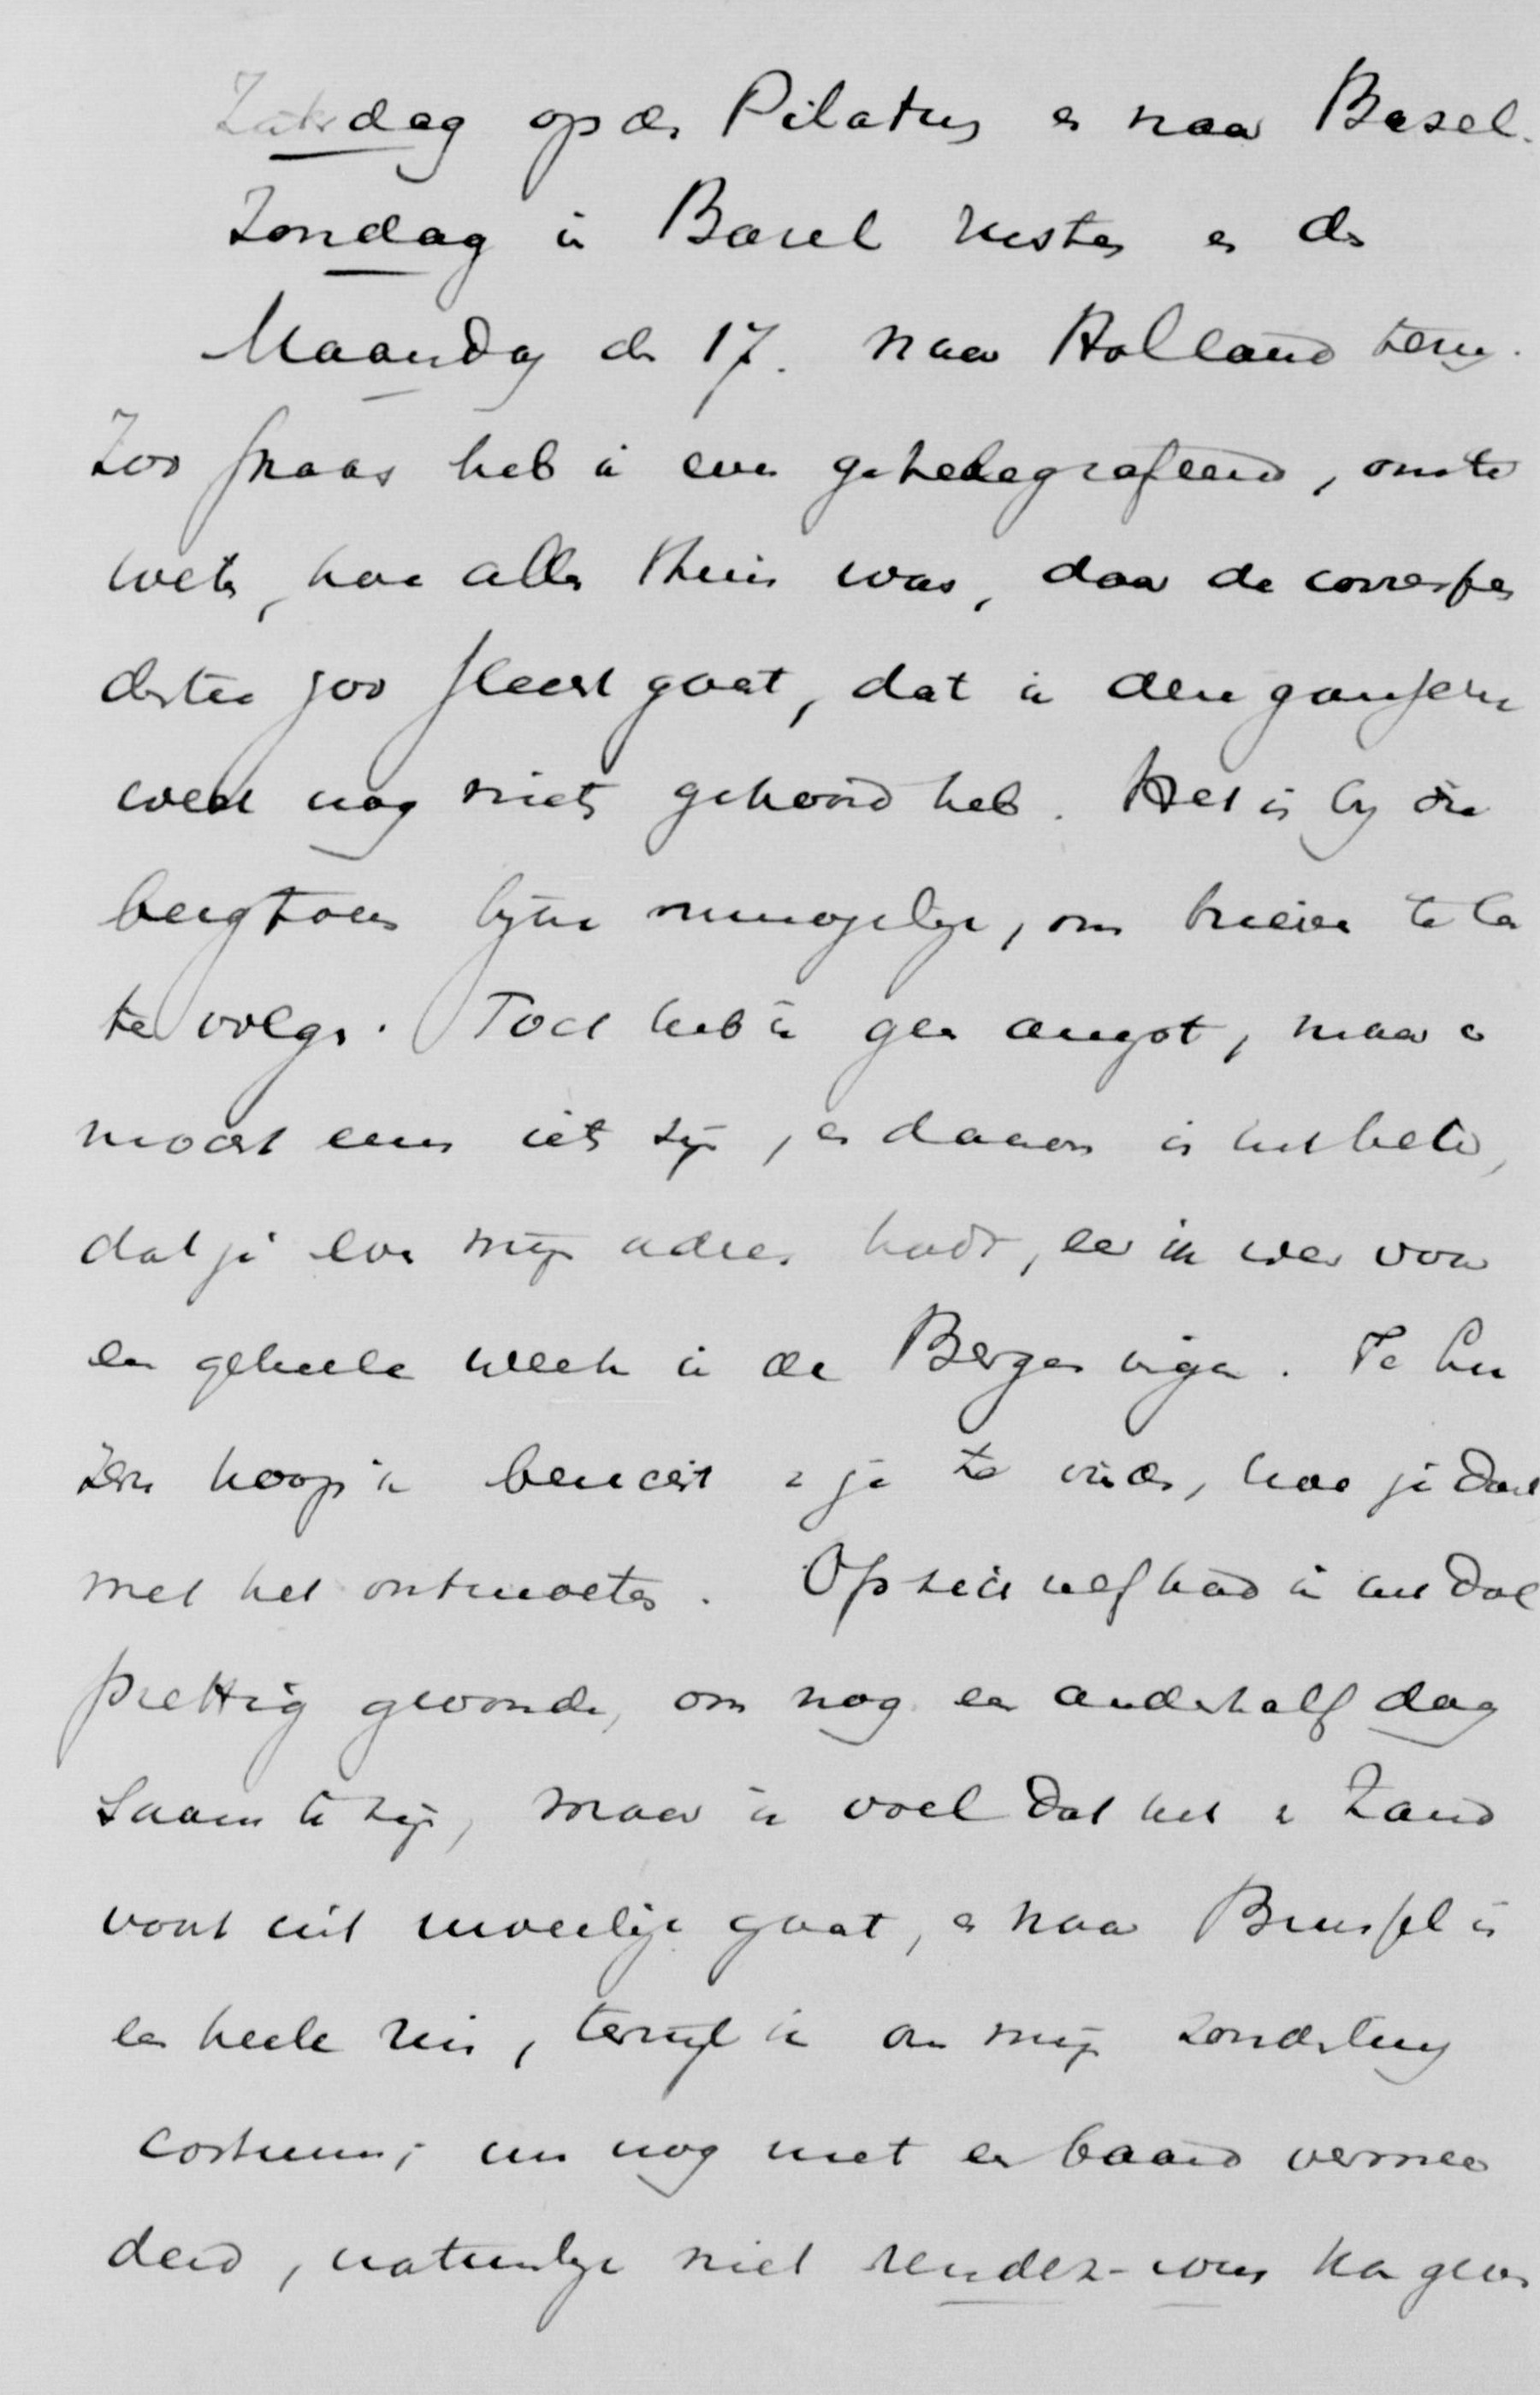 Zaterdag op den Pilatus en naar Basel.
Zondag in Basel rusten en den
Maandag den 17. naar Holland terug.
Zoo straks heb ik even getelegrafeerd, om te
weten, hoe alles thuis was, daar de correspon
dentie zoo slecht gaat, dat ik den ganschen
week nog niets gehoord heb. Het is bij die
bergtoeren bijna onmogelijk, om brieven te la
ten volgen. Toch heb ik geen angst, maar er
mocht eens iets zijn, en daarom is het beter,
dat je even mijn adres hadt, eer ik weer voor
een geheele week in de Bergen inga. Te Lu
zern hoop ik bericht van je te vinden, hoe je denkt
met het ontmoeten. Op zich zelf had ik het dol
prettig gevonden, om nog een anderhalf dag
saam te zijn, maar ik voel dat het van Zand
voort uit moeilijk gaat, en naar Brussel is
een heele reis, terwijl ik om mijn zonderling
costuum, nu nog met een baard vermeer
derd, natuurlijk niet rendez-vous kan geven